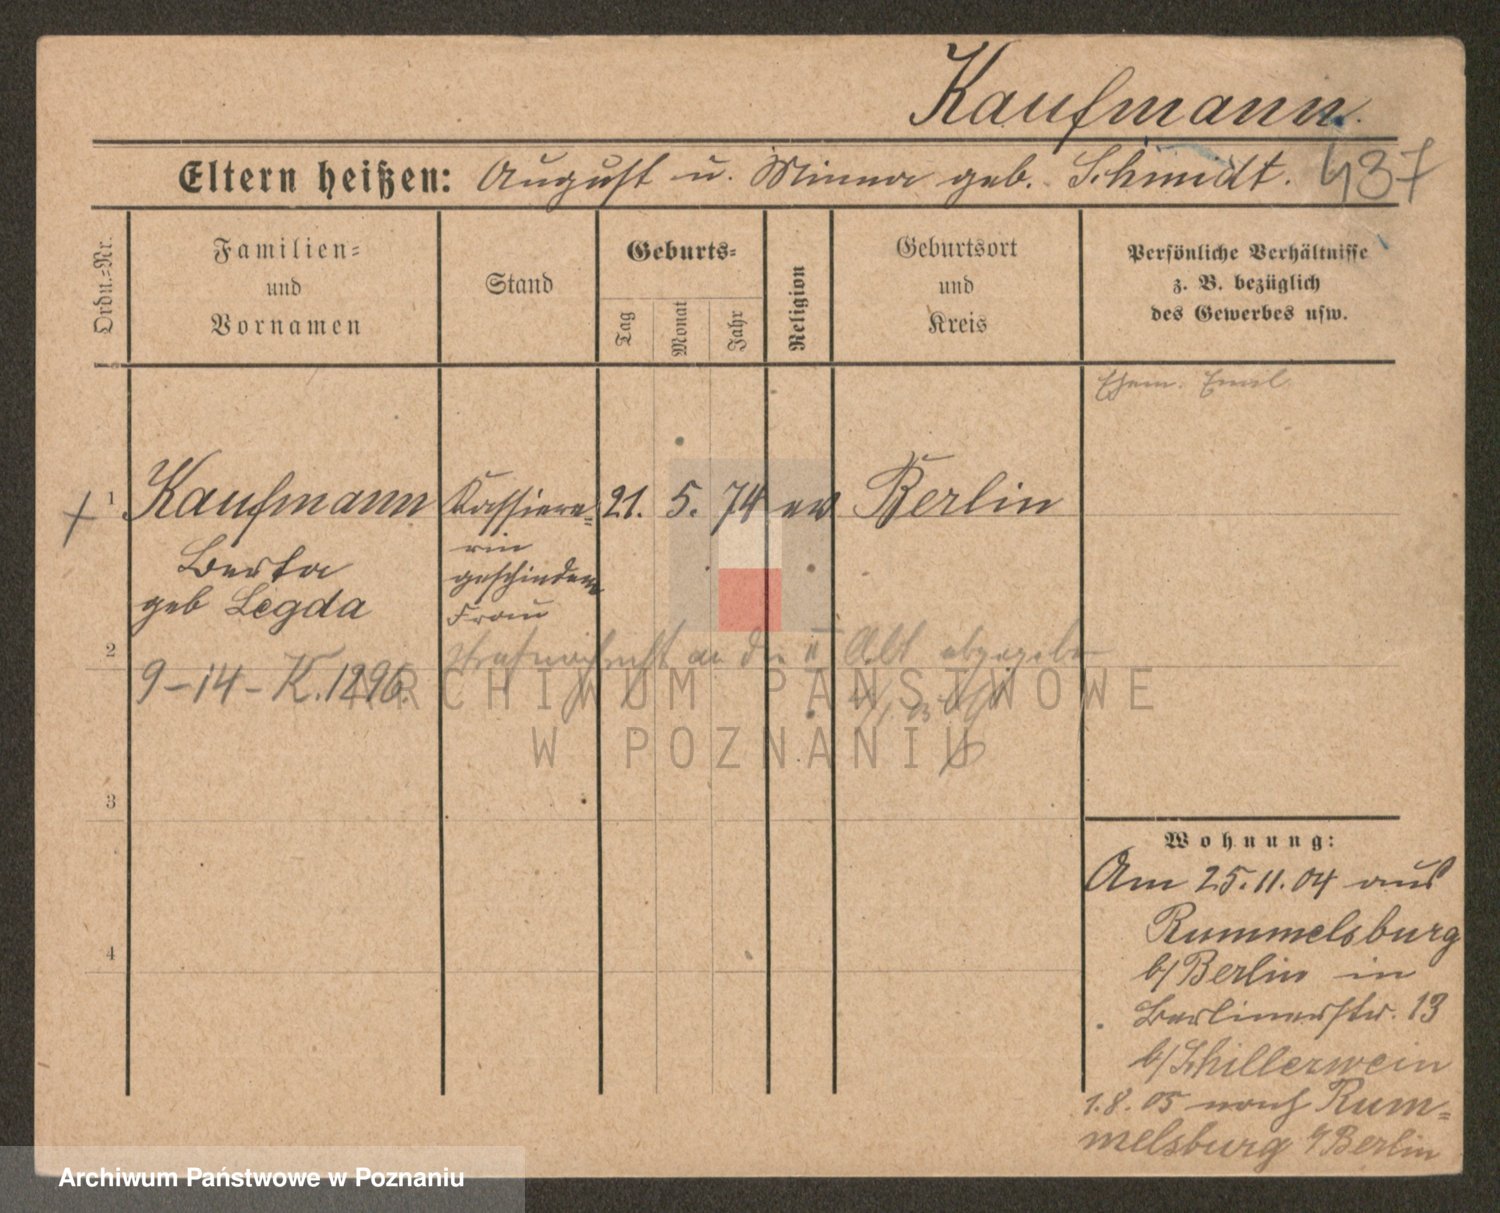 Kaufmann.
Eltern heißen: August u. Minna geb. Schmidt. 437
Ordn.-Nr.
Familien-
und
Vornamen
Stand
Geburts-
Tag
Monat
Jahr
Religion
Geburtsort
und
Kreis
Persönliche Verhältnisse
z. B. bezüglich
des Gewerbes usw.
Ehem. Emil
1 Kaufmann Kassiere- 21. 5. 74 ev Berlin
rin
Berta
geschiedene
geb Legda
Frau
2
9-14-K.1296.
abgegeben
ARCHIWUM PAŃSTWOWE
W POZNANIU
3
Wohnung:
Am 25.11.04 aus
Rummelsburg
b/Berlin in
4
Berlinerstr. 13
b/Schillerwein
1.8.05 nach Rum-
melsburg b/Berlin
Archiwum Państwowe w Poznaniu